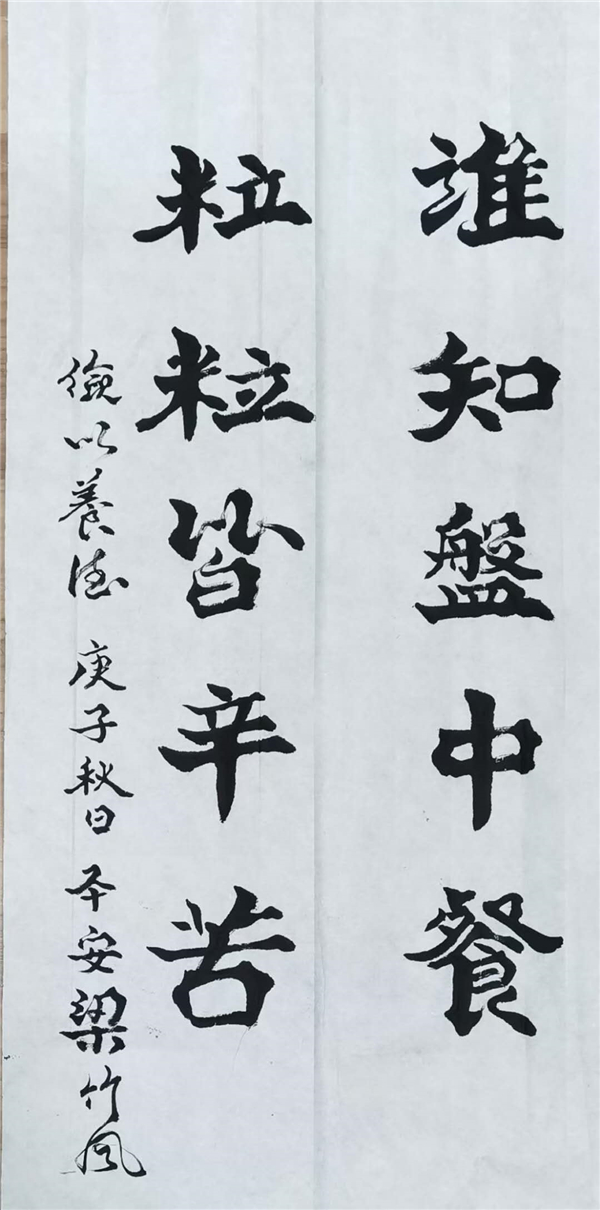 誰知盤中餐
粒粒皆辛苦
儉以養德 庚子秋日 本安梁竹風